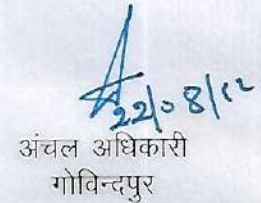 22/08/12
अंचल अधिकारी
गोविन्दपुर